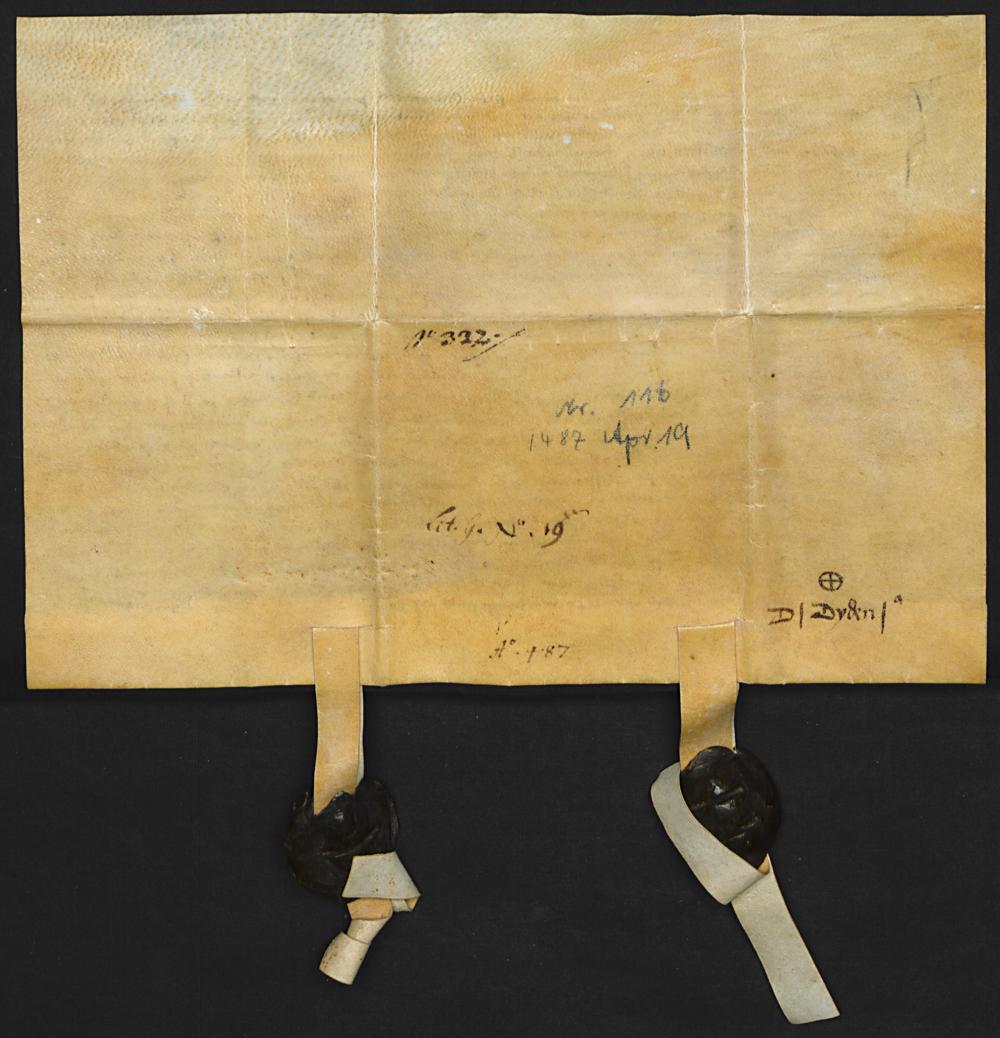 N° 332.
Nr. 116
1487 Apr. 19
Lit. G. N°. 19
A°. 487